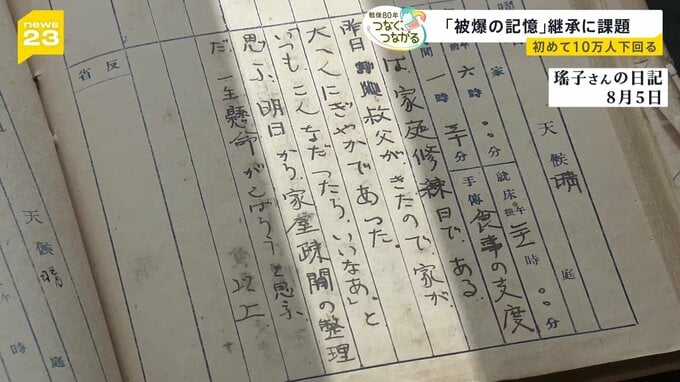 news
23
戦後80年
つなぐ、
つながる
「被爆の記憶」継承に課題
初めて10万人下回る
瑤子さんの日記
8月5日
天候 晴
家庭
六時〇〇分
就床
時〇〇分
一時三十分
手傳
食事の支度
は家庭修練日である。
昨日叔父がきたので、家が
大へんにぎやかであった。
「いつもこんなだったらいいなあ」と
思ふ。明日から、家屋疎開の整理
だ。一生懸命がんばろうと思ふ。
以上
反省
天候 晴
時
庭